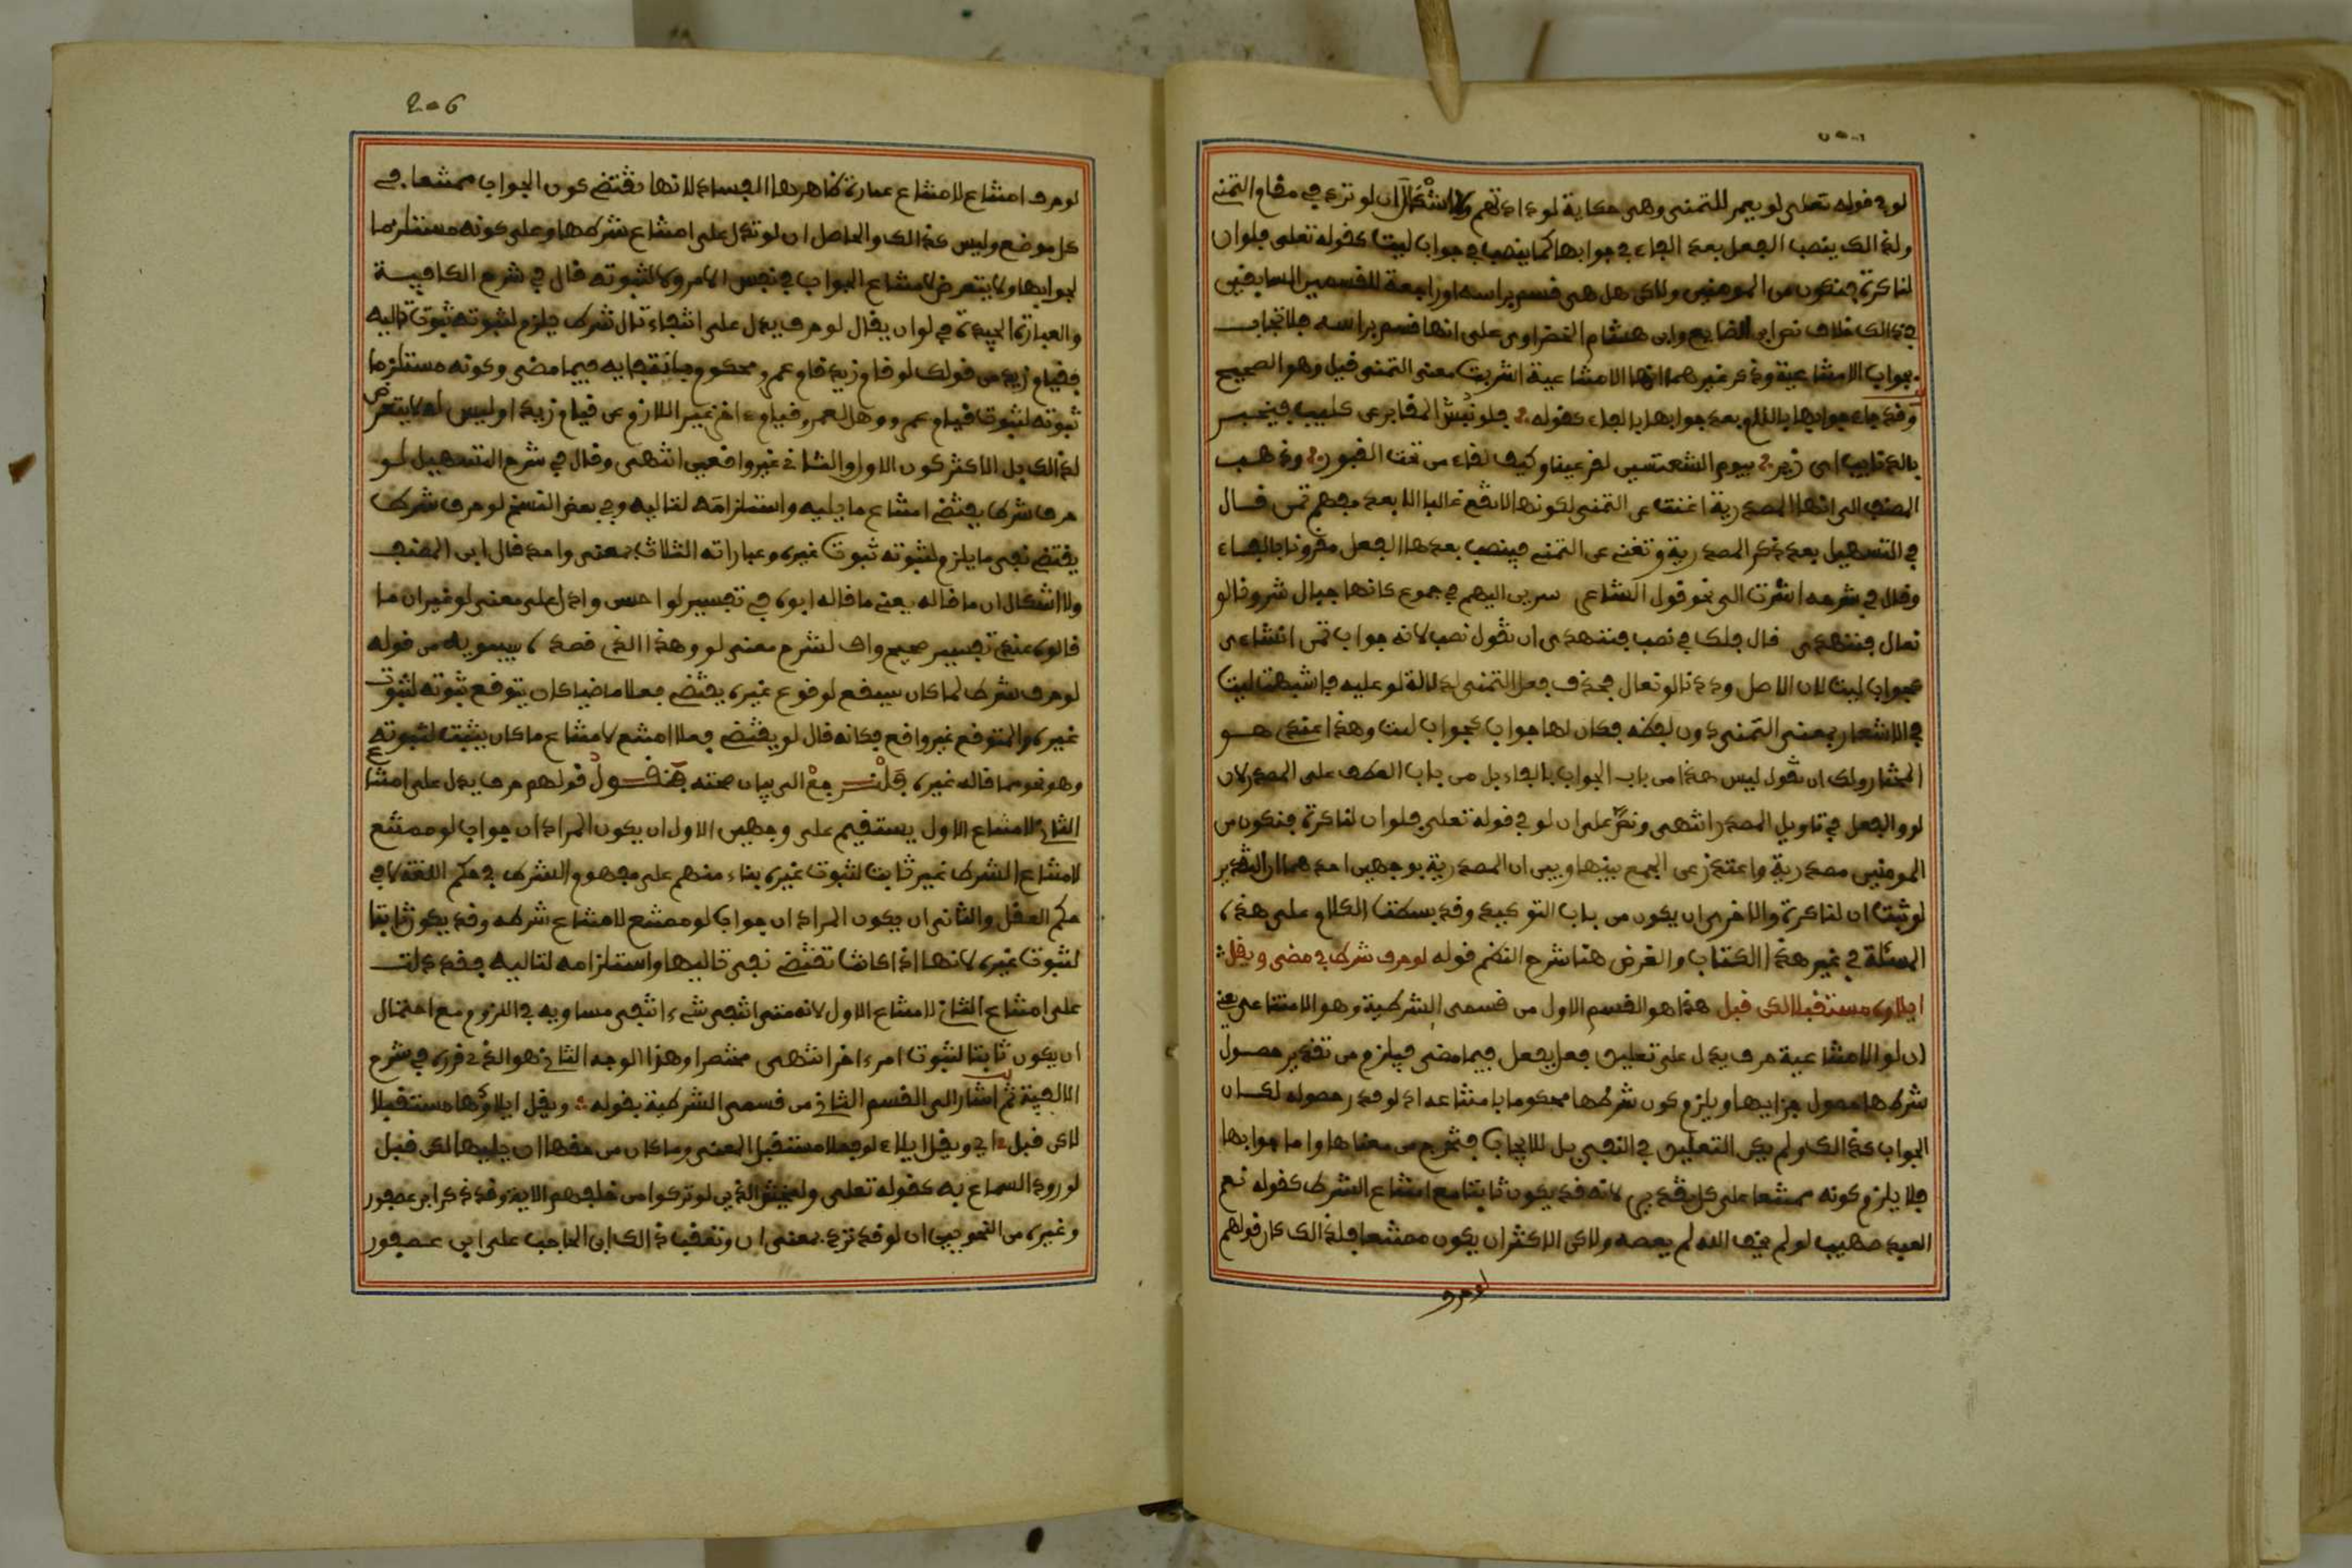 لو في قوله تعلى لو يعمر للتمنى وهى حكاية لودادتهم ولا اشكال ان لو ترد في مقام التمنى
ولذالك ينصب الفعل بعد الفاء في جوابها كما ينصب في جواب ليت كقوله تعلى فلو ان
لنا كرة فنكون من المومنين ولاكن هل هى قسم براسه او راجعة للقسمين السابقين
في ذالك خلاف نص ابن الضايع وابن هشام الخضراوى على انها قسم براسه فلا تجاب
بجواب الامتناعية وذكر غيرهما انها الامتناعية اشربت معنى التمنى قيل وهو الصحيح
وقد جاء جوابها باللام بعد جوابها بالفاء كقوله فلو نبش المقابر عن كليب فيخبر
بالذنايب اى زير بيوم الشعثمين لقر عينا وكيف لقاء من تحت القبور وذهب
المصنف الى انها المصدرية اغنت عن التمنى لكونها لا تقع غالبا الا بعد مفهم تمن قال
في التسهيل بعد ذكر المصدرية وتغنى عن التمنى فينصب بعدها الفعل مقرونا بالفاء
وقال في شرحه اشرت الى نحو قول الشاعر سرينا اليهم في جموع كانها جبال شرورا لو
تعان فننهدى قال فلك في نصب فننهدى ان تقول نصب لانه جواب تمن انشاءى
كجواب ليت لان الاصل وددنا لو تعان فحذف فعل التمنى لدلالة لو عليه فاشبهت ليت
في الاشعار بمعنى التمنى دون لفظه فكان لها جواب كجواب ليت وهذا عندى هو
المختار ولك ان تقول ليس هذا من باب الجواب بالفاء بل من باب العطف على المصدر لان
لو والفعل في تاويل المصدر انتهى ونص على ان لو في قوله تعلى فلو ان لنا كرة فنكون من
المومنين مصدرية واعتذر عن الجمع بينها وبين ان المصدرية بوجهين احدهما ان التقدير
لو ثبت ان لنا كرة والاخر ان يكون من باب التوكيد وقد بسطت الكلام على هذه
المسئلة في غير هذا الكتاب والغرض هنا شرح النظم قوله لو حرف شرط في مضى ويقل
ايلاوه مستقبلا لكن قبل هذا هو القسم الاول من قسمى الشرطية وهو الامتناعى يعنى
ان لو الامتناعية حرف يدل على تعليق فعل بفعل فيما مضى فيلزم من تقدير حصول
شرطها حصول جزايها ويلزم كون شرطها محكوما بامتناعه اذ لو قدر حصوله لكان
الجواب كذالك ولم يكن التعليق في النفى بل للايجاب فتخرج من معناها واما جوابها
فلا يلزم كونه ممتنعا على كل تقدير لانه قد يكون ثابتا مع امتناع الشرط كقوله نعم
العبد صهيب لو لم يخف الله لم يعصه ولاكن الاكثر ان يكون ممتنعا فلذالك كان قولهم
لو حرف
206
لو حرف امتناع لامتناع عبارة ظاهرها الفساد لانها تقتضى كون الجواب ممتنعا في
كل موضع وليس كذالك والحاصل ان لو تدل على امتناع شرطها وعلى كونه مستلزما
لجوابها ولا يتعرض لامتناع الجواب في نفس الامر ولا لثبوته قال في شرح الكافية
والعبارة الجيدة في لو ان يقال لو حرف يدل على انتفاء تال شرط يلزم لثبوته ثبوت تاليه
فقيام زيد من قولك لو قام زيد قام عمرو محكوم بانتفايه فيما مضى وكونه مستلزما
ثبوته لثبوت قيام عمرو وهل لعمرو قيام اخر غير اللازم عن قيام زيد او ليس له لا يتعرض
لذالك بل الاكثر كون الاول والثانى غير واقعين انتهى وقال في شرح التسهيل لو
حرف شرط يقتضى امتناع ما يليه واستلزامه لتاليه وفي بعض النسخ لو حرف شرط
يقتضى نفى ما يلزم لثبوته ثبوت غيره وعباراته الثلاث بمعنى واحد قال ابن المصنف
ولا اشكال ان ما قاله يعنى ما قاله ابوه في تفسير لو احسن وادل على معنى لو غير ان ما
قالوه عندى تفسير صحيح واف لشرح معنى لو وهذا الذى قصد سيبويه من قوله
لو حرف شرط لما كان سيقع لوقوع غيره يقتضى فعلا ماضيا كان يتوقع ثبوته لثبوت
غيره والمتوقع غير واقع فكانه قال لو يقتضى فعلا امتنع لامتناع ما كان يثبت لثبوته
وهو نحو مما قاله غيره فلنرجع الى بيان صحته فنقول قولهم حرف يدل على امتناع
الثانى لامتناع الاول يستقيم على وجهين الاول ان يكون المراد ان جواب لو ممتنع
لامتناع الشرط غير ثابت لثبوت غيره بناء منهم على مفهوم الشرط في حكم اللغة لا في
حكم العقل والثانى ان يكون المراد ان جواب لو ممتنع لامتناع شرطه وقد يكون ثابتا
لثبوت غيره لانها اذا كانت تقتضى نفى تاليها واستلزامه لتاليه فقد دلت
على امتناع الثانى لامتناع الاول لانه متى انتفى شىء انتفى مساويه في اللزوم مع احتمال
ان يكون ثابتا لثبوت امر اخر انتهى مختصرا وهذا الوجه الثانى هو الذى قرره في شرح
الالفية ثم اشار الى القسم الثانى من قسمى الشرطية بقوله ويقل ايلاوها مستقبلا
لاكن قبل اى ويقل ايلاء لو فعلا مستقبل المعنى وما كان من حقها ان يليها لكن قبل
لورود السماع به كقوله تعلى وليخش الذين لو تركوا من خلفهم الاية وقد ذكر ابن عصفور
وغيره من النحويين ان لو قد ترد بمعنى ان وتعقب ذالك ابن الحاجب على ابن عصفور